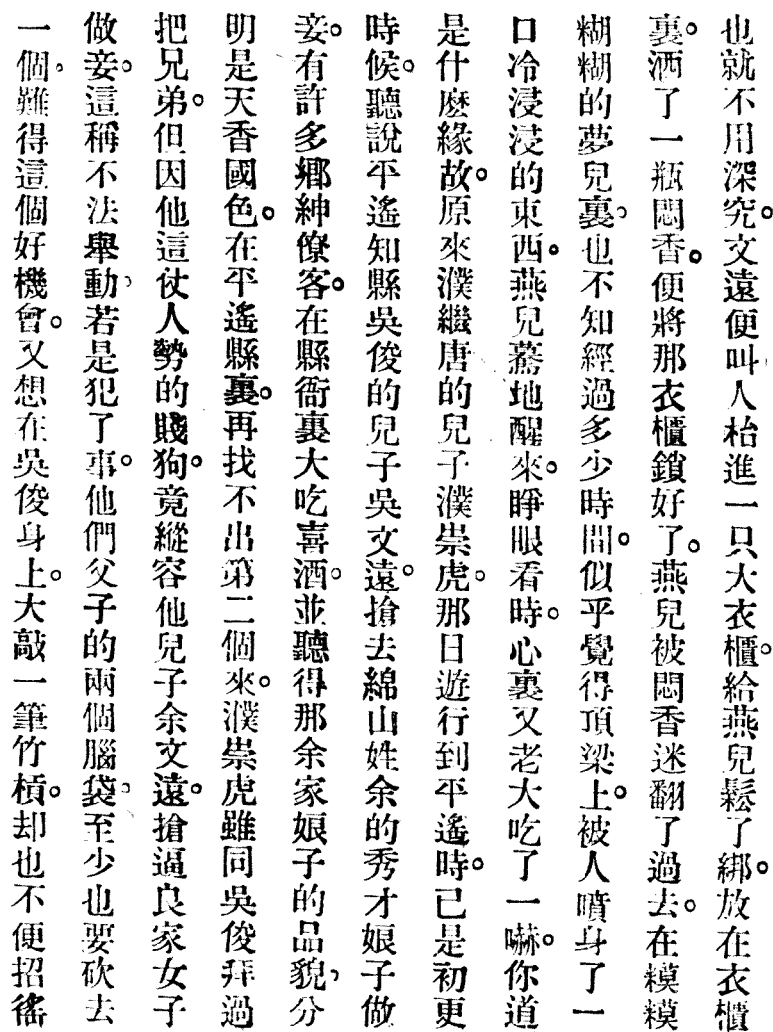 也就不用深究。文遠便叫人枱進一只大衣櫃。給燕兒鬆了綁。放在衣櫃
裏。洒了一瓶悶香。便將那衣櫃鎖好了。燕兒被悶香迷翻了過去。在糢糢
糊糊的夢兒裏。也不知經過多少時間。似乎覺得頂梁上。被人噴身了一
口冷浸浸的東西。燕兒驀地醒來。睜眼看時。心裏又老大吃了一嚇。你道
是什麽緣故。原來濮繼唐的兒子濮崇虎。那日遊行到平遙時。已是初更
時候。聽說平遙知縣吳俊的兒子吳文遠。搶去綿山姓余的秀才娘子做
妾。有許多鄉紳僚客。在縣衙裏大吃喜酒。並聽得那余家娘子的品貌。分
明是天香國色。在平遙縣裏。再找不出第二個來。濮崇虎雖同吳俊拜過
把兄弟。但因他這仗人勢的賤狗。竟縱容他兒子余文遠。搶逼良家女子
做妾。這稱不法舉動。若是犯了事。他們父子的兩個腦袋。至少也要砍去
一個。難得這個好機會。又想在吳俊身上。大敲一筆竹槓。却也不便招徭